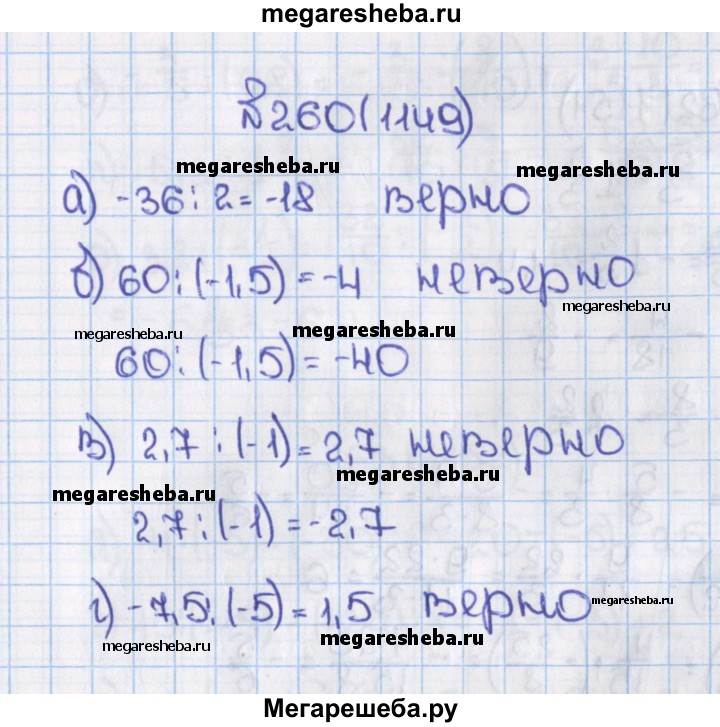 megaresheba.ru
№260(1149)
megaresheba.ru megaresheba.ru
а) -36 : 2 = -18 верно
б) 60 : (-1,5) = -4 неверно
megaresheba.ru
megaresheba.ru megaresheba.ru
60 : (-1,5) = -40
megaresheba.ru
в) 2,7 : (-1) = 2,7 неверно
megaresheba.ru
megaresheba.ru
2,7 : (-1) = -2,7
г) -7,5 : (-5) = 1,5 верно
megaresheba.ru
megaresheba.ru
megaresheba.ru
Мегарешеба.ру